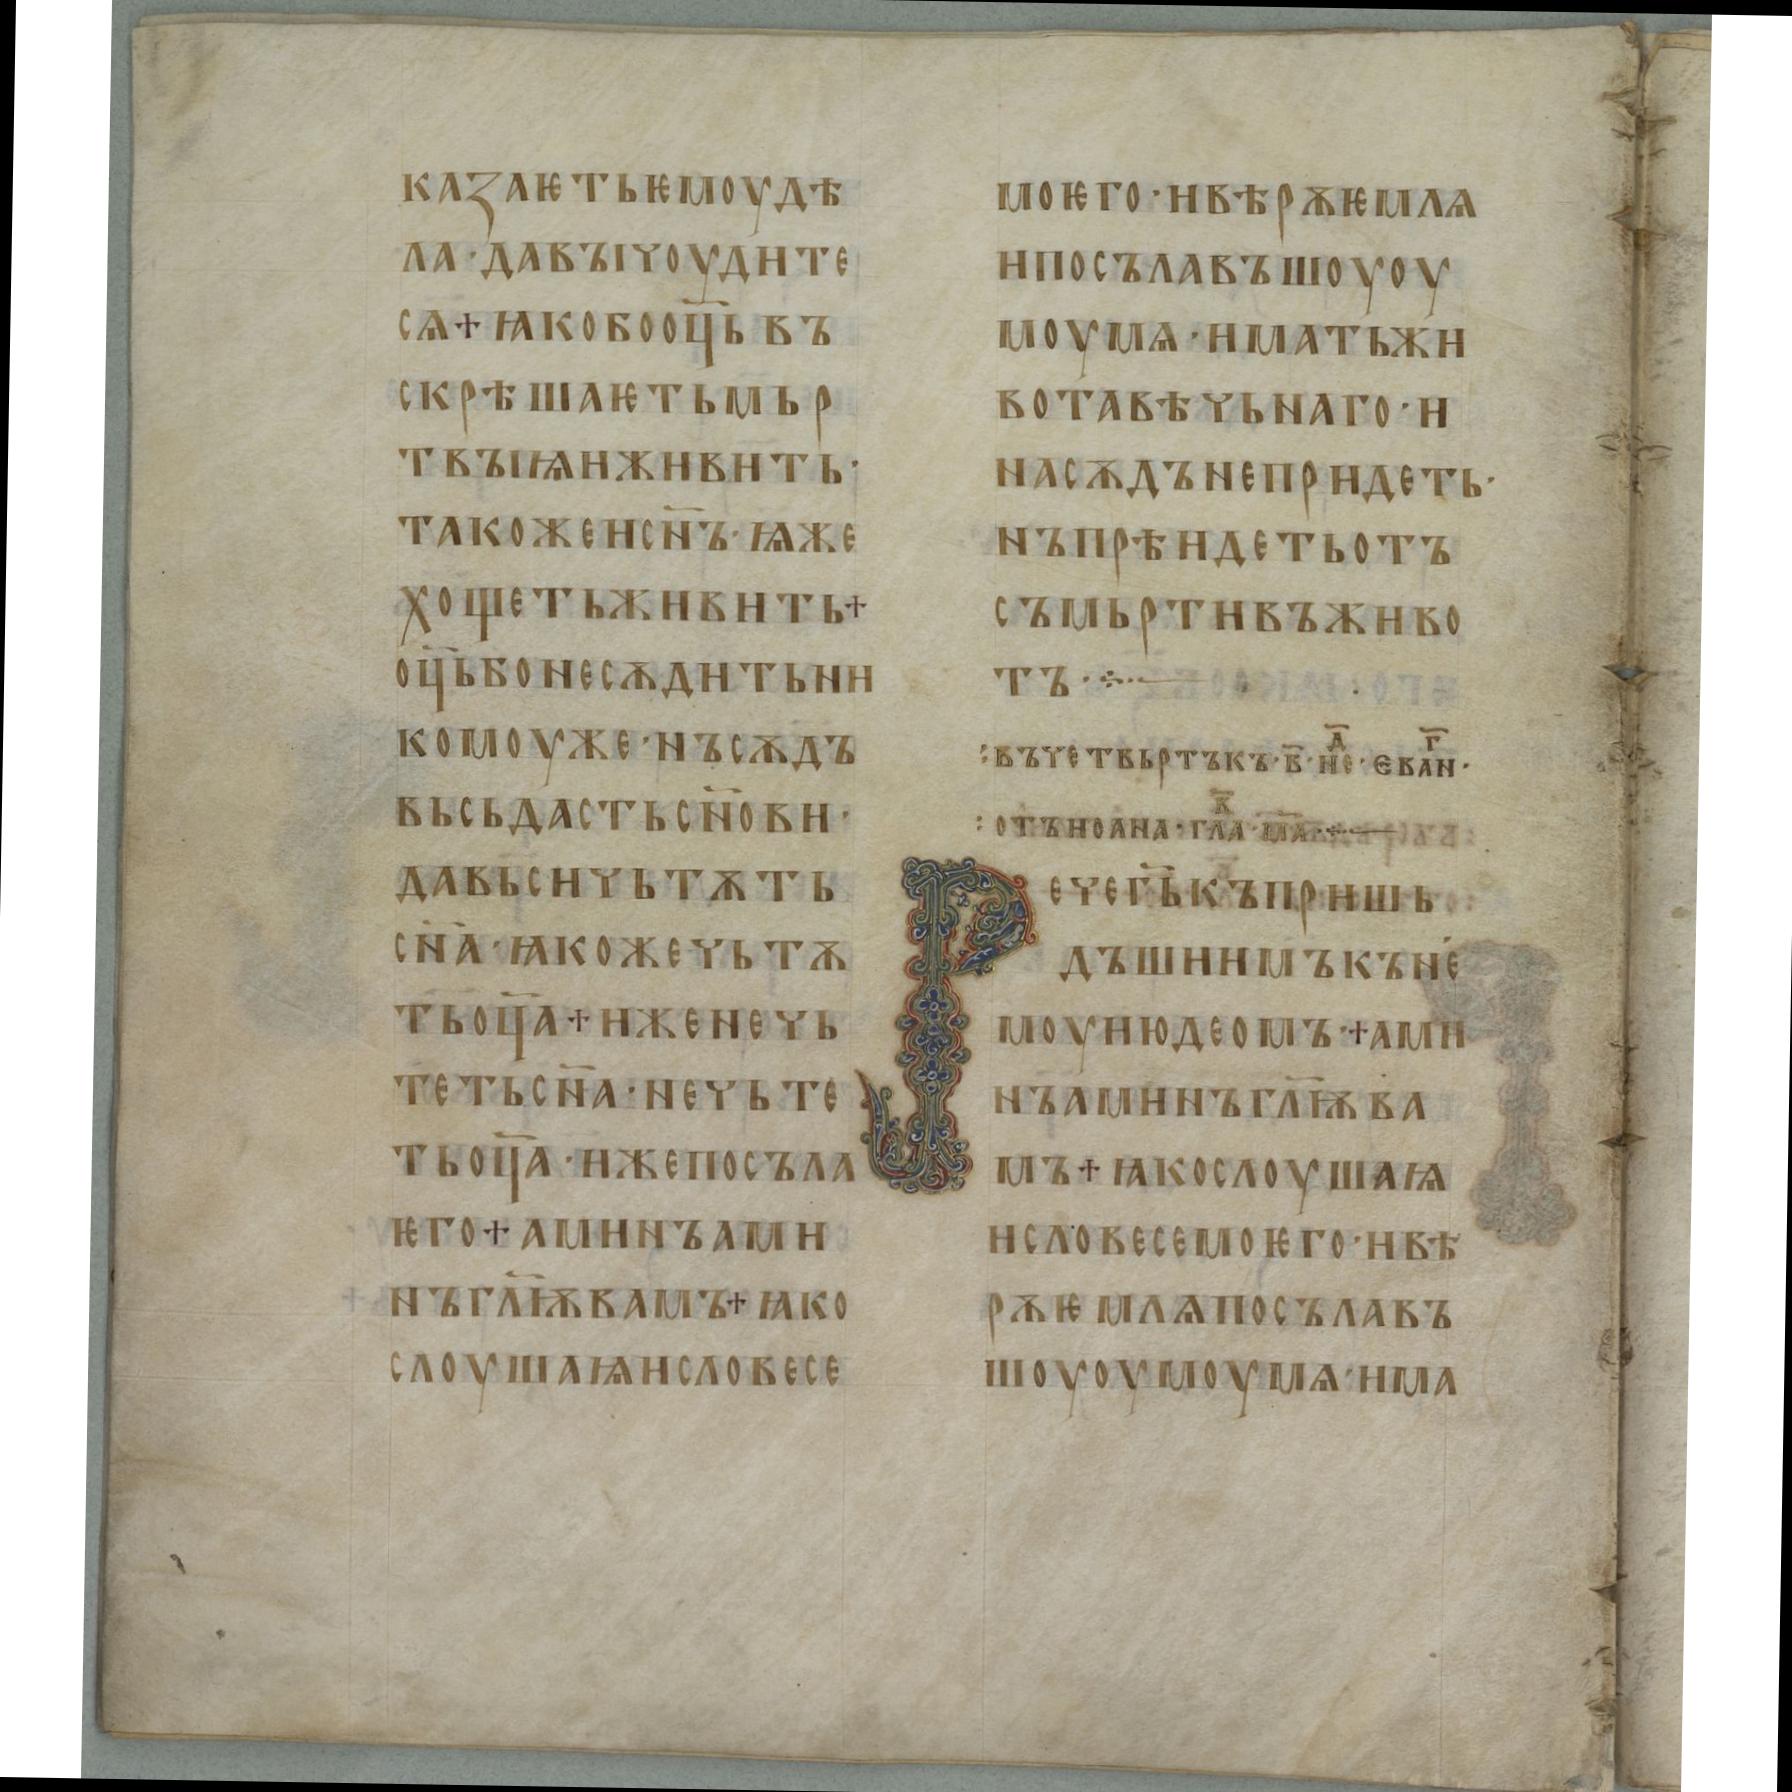 каꙁаѥтьѥмоудѣ
ла·давꙑчоудите
сѧ+ꙗкобооц҃ьвъ
скрѣшаѥтьмьр
твꙑѩиживить·
такожеисн҃ъ·ѩже
хощетьживить+
оц҃ьбонесѫдитьни
комоуже·нъсѫдъ
вьсьдастьсн҃ови·
давьсичьтѫть
сн҃а·ꙗкожечьтѫ
тьоц҃а+иженечь
тетьсн҃а·нечьте
тьоц҃а·ижепосъла
ѥго+аминъами
нъгл҃ѭвамъ+ꙗко
слоушаѩисловесе
моѥго·ивѣрѫѥмлѧ
ипосълавъшоуоу
моумѧ·иматьжи
вотавѣчьнаго·и
насѫдънепридеть·
нъпрѣидетьотъ
съмьртивъживо
тъ·
:въчетвьртъкъ·в҃·не҃·д҃·еван·г҃·
:отъиоана·гла·к҃·ма·
Речегь҃къпришь
дъшиимъкъне
моуиюдеомъ·+ами
нъаминъгл҃ѭва
мъ+ꙗкослоушаѩ
исловесемоѥго·ивѣ
рѫѥмлѧпосълавъ
шоуоумоумѧ·има